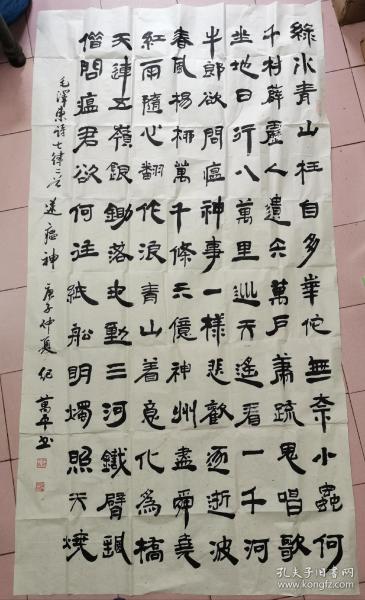 綠水青山枉自多華佗無奈小蟲何
千村薜荔人遺矢萬戶蕭疏鬼唱歌
坐地日行八萬里巡天遙看一千河
牛郎欲問瘟神事一樣悲歡逐逝波
春風楊柳萬千條六億神州盡舜堯
紅雨隨心翻作浪青山着意化為橋
天連五嶺銀鋤落地動三河鐵臂搖
借問瘟君欲何往紙船明燭照天燒
毛澤東詩七律二首 送瘟神 庚子仲夏 紀萬平书
孔夫子旧书网